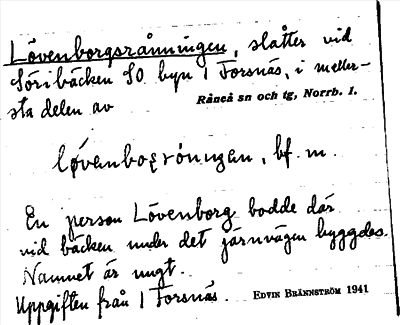 Lövenborgsrånningen, slåtter vid
Söribäcken SO byn 1 Forsnäs, i meller-
sta delen av
Råneå sn och tg, Norrb. l.
løvenborgróningen, bf. m.
En person Lövenborg bodde där
vid bäcken under det järnvägen byggdes.
Namnet är ungt.
Uppgiften från 1 Forsnäs. EDVIN BRÄNNSTRÖM 1941